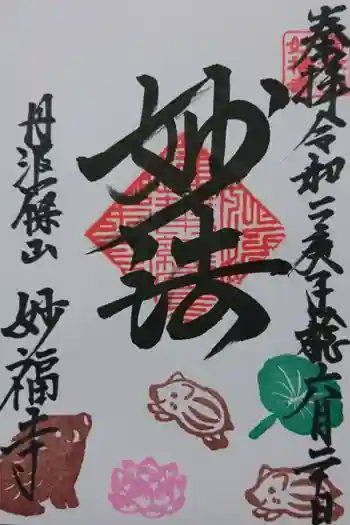 奉拝 令和二庚子歳 六月二十日
妙法
丹波篠山 妙福寺